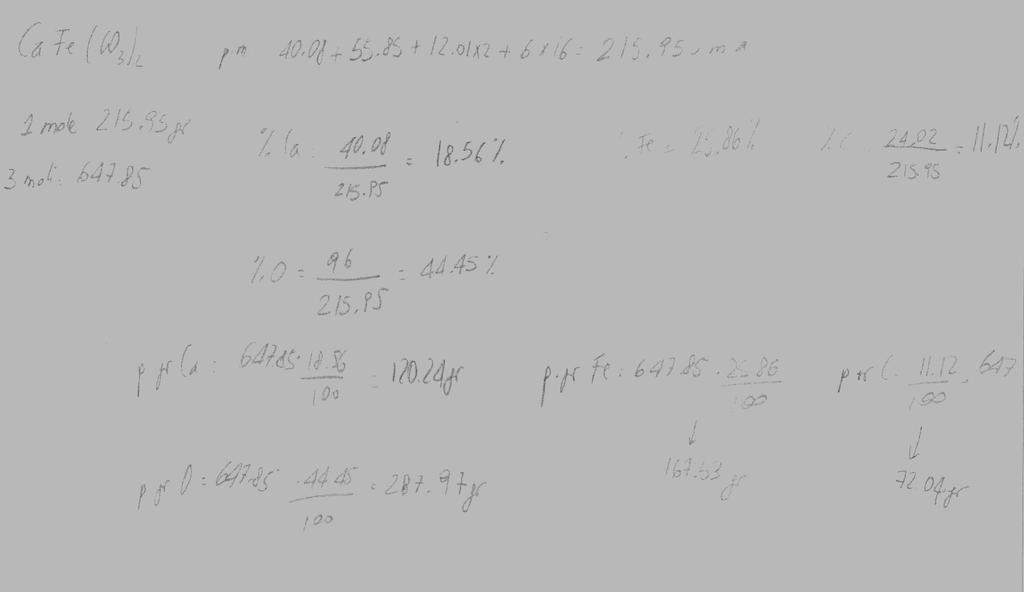 CaFe(CO3)2 p.m 40.08 + 55.85 + 12.01x2 + 6x16 = 215.95 u m a
1 mole 215.95 gr
% Ca = 40.08 / 215.95 = 18.56 % % Fe = 25.86% % C = 24.02 / 215.95 = 11.12%
3 moli: 647.85
% O = 96 / 215.95 = 44.45 %
p gr Ca = 647.85 · 18.56 / 100 = 120.24 gr p.gr Fe: 647.85 · 25.86 / 100 p gr C. 11.12 / 100 . 647
↓ 167.53 gr ↓ 72.04 gr
p gr O = 647.85 · 44.45 / 100 = 287.97 gr